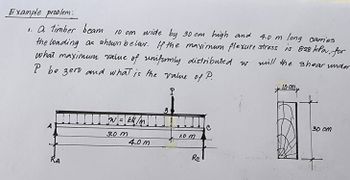 Example problem:
1. A timber beam 10 cm wide by 30 cm high and 4.0 m long carries
the loading as shown below. If the maximum flexure stress is 828 kPa, for
what maximum value of uniformly distributed w will the shear under
P be zero and what is the value of P.
P
10 cm
B
W = kN/m
A
C
30 cm
3.0 m
1.0 m
4.0 m
RA
RC